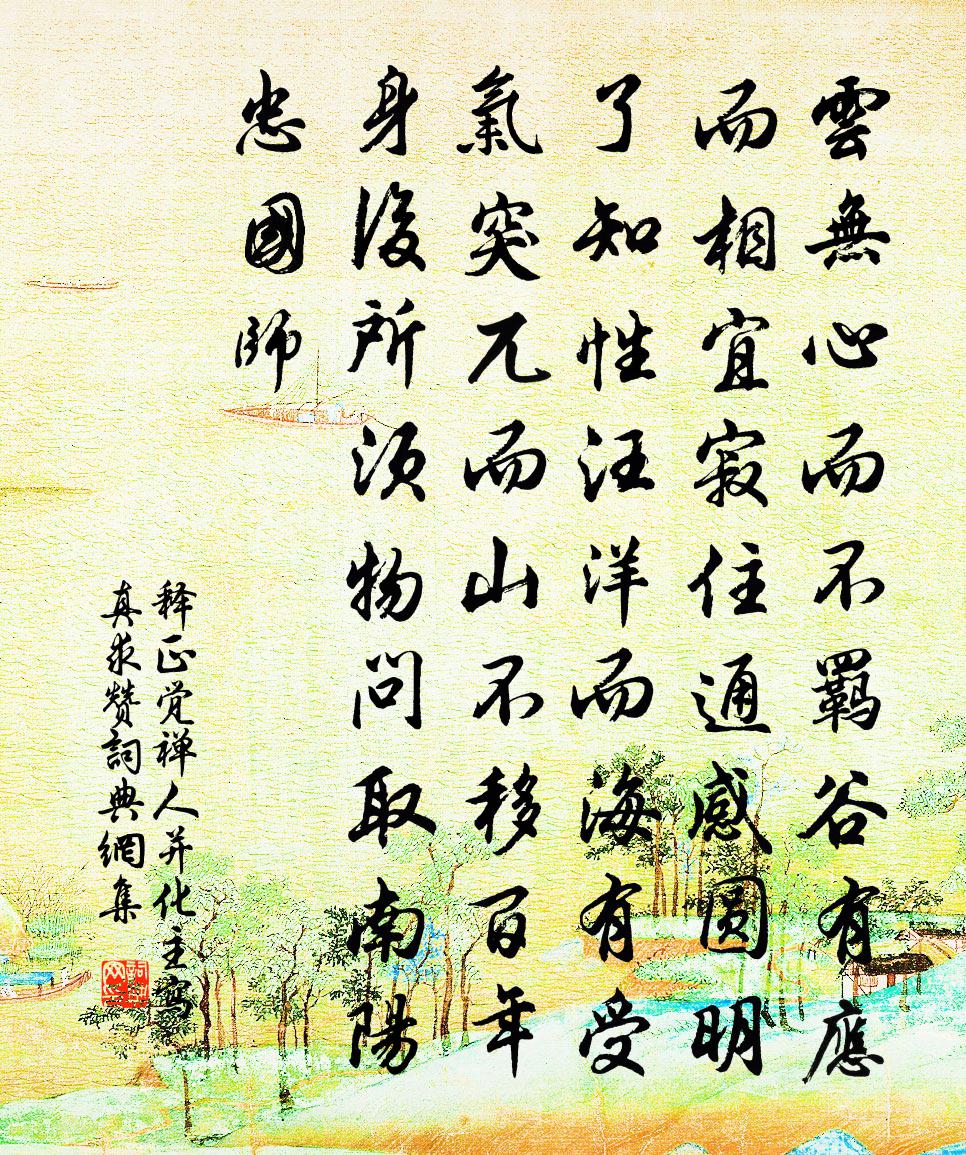 雲無心而不羈谷有應
而相宜寂住通感圓明
了知性汪洋而海有受
氣突兀而山不移百年
身後所須物問取南陽
忠國師
释正觉禅人并化主寫
真求贊詞典網集